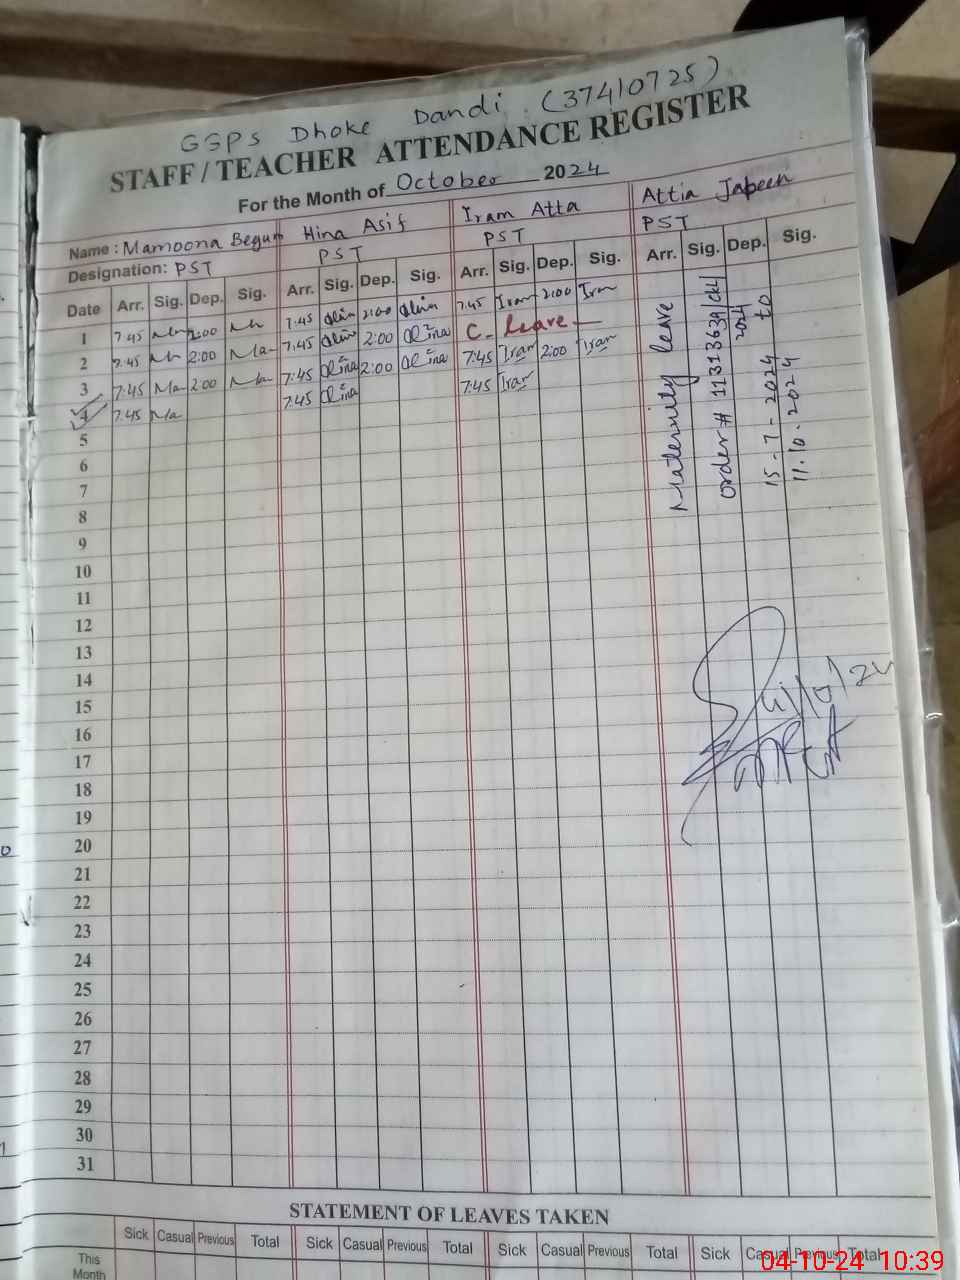 GGPS Dhoke Dandi. (37410725)
STAFF / TEACHER ATTENDANCE REGISTER
For the Month of October 2024
Name : Mamoona Begum Hina Asif Iram Atta Attia Jabeen
Designation: PST PST PST PST
Date Arr. Sig. Dep. Sig. Arr. Sig. Dep. Sig. Arr. Sig. Dep. Sig. Arr. Sig. Dep. Sig.
1 7:45 2:00 7:45 2:00 7:45 Iram 2:00 Iram
2 7:45 2:00 7:45 2:00 C- Leave-
3 7:45 Ma 2:00 Ma 7:45 2:00 7:45 Iram 2:00 Iram
4 7:45 Ma 7:45 7:45 Iram
5
6
7
8
9
10
11
12
13
14
15
16
17
18
19
20
21
22
23
24
25
26
27
28
29
30
31
Maternity leave
order # 2024
15-7-2024 to
11.10.2024
STATEMENT OF LEAVES TAKEN
Sick Casual Previous Total Sick Casual Previous Total Sick Casual Previous Total Sick Casual Previous Total
This
Month
04-10-24 10:39